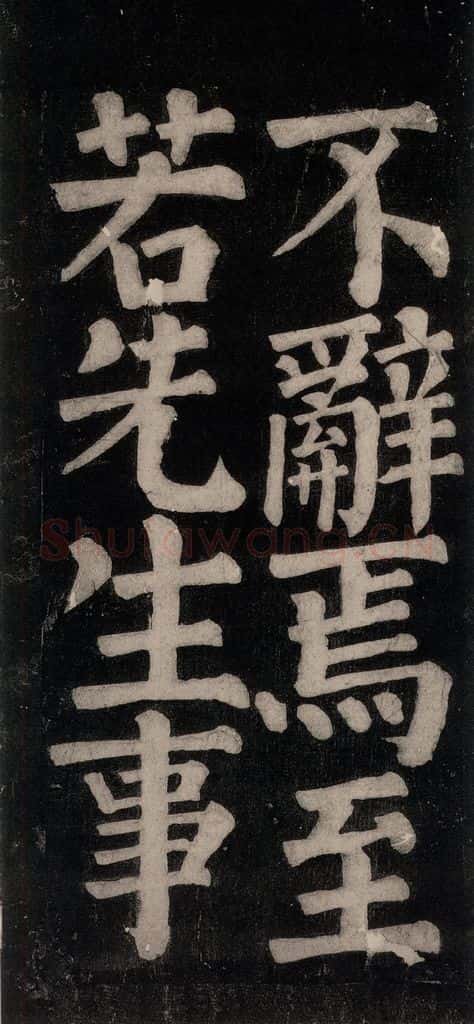 不辭焉至
若先生事
Shufawang.CN